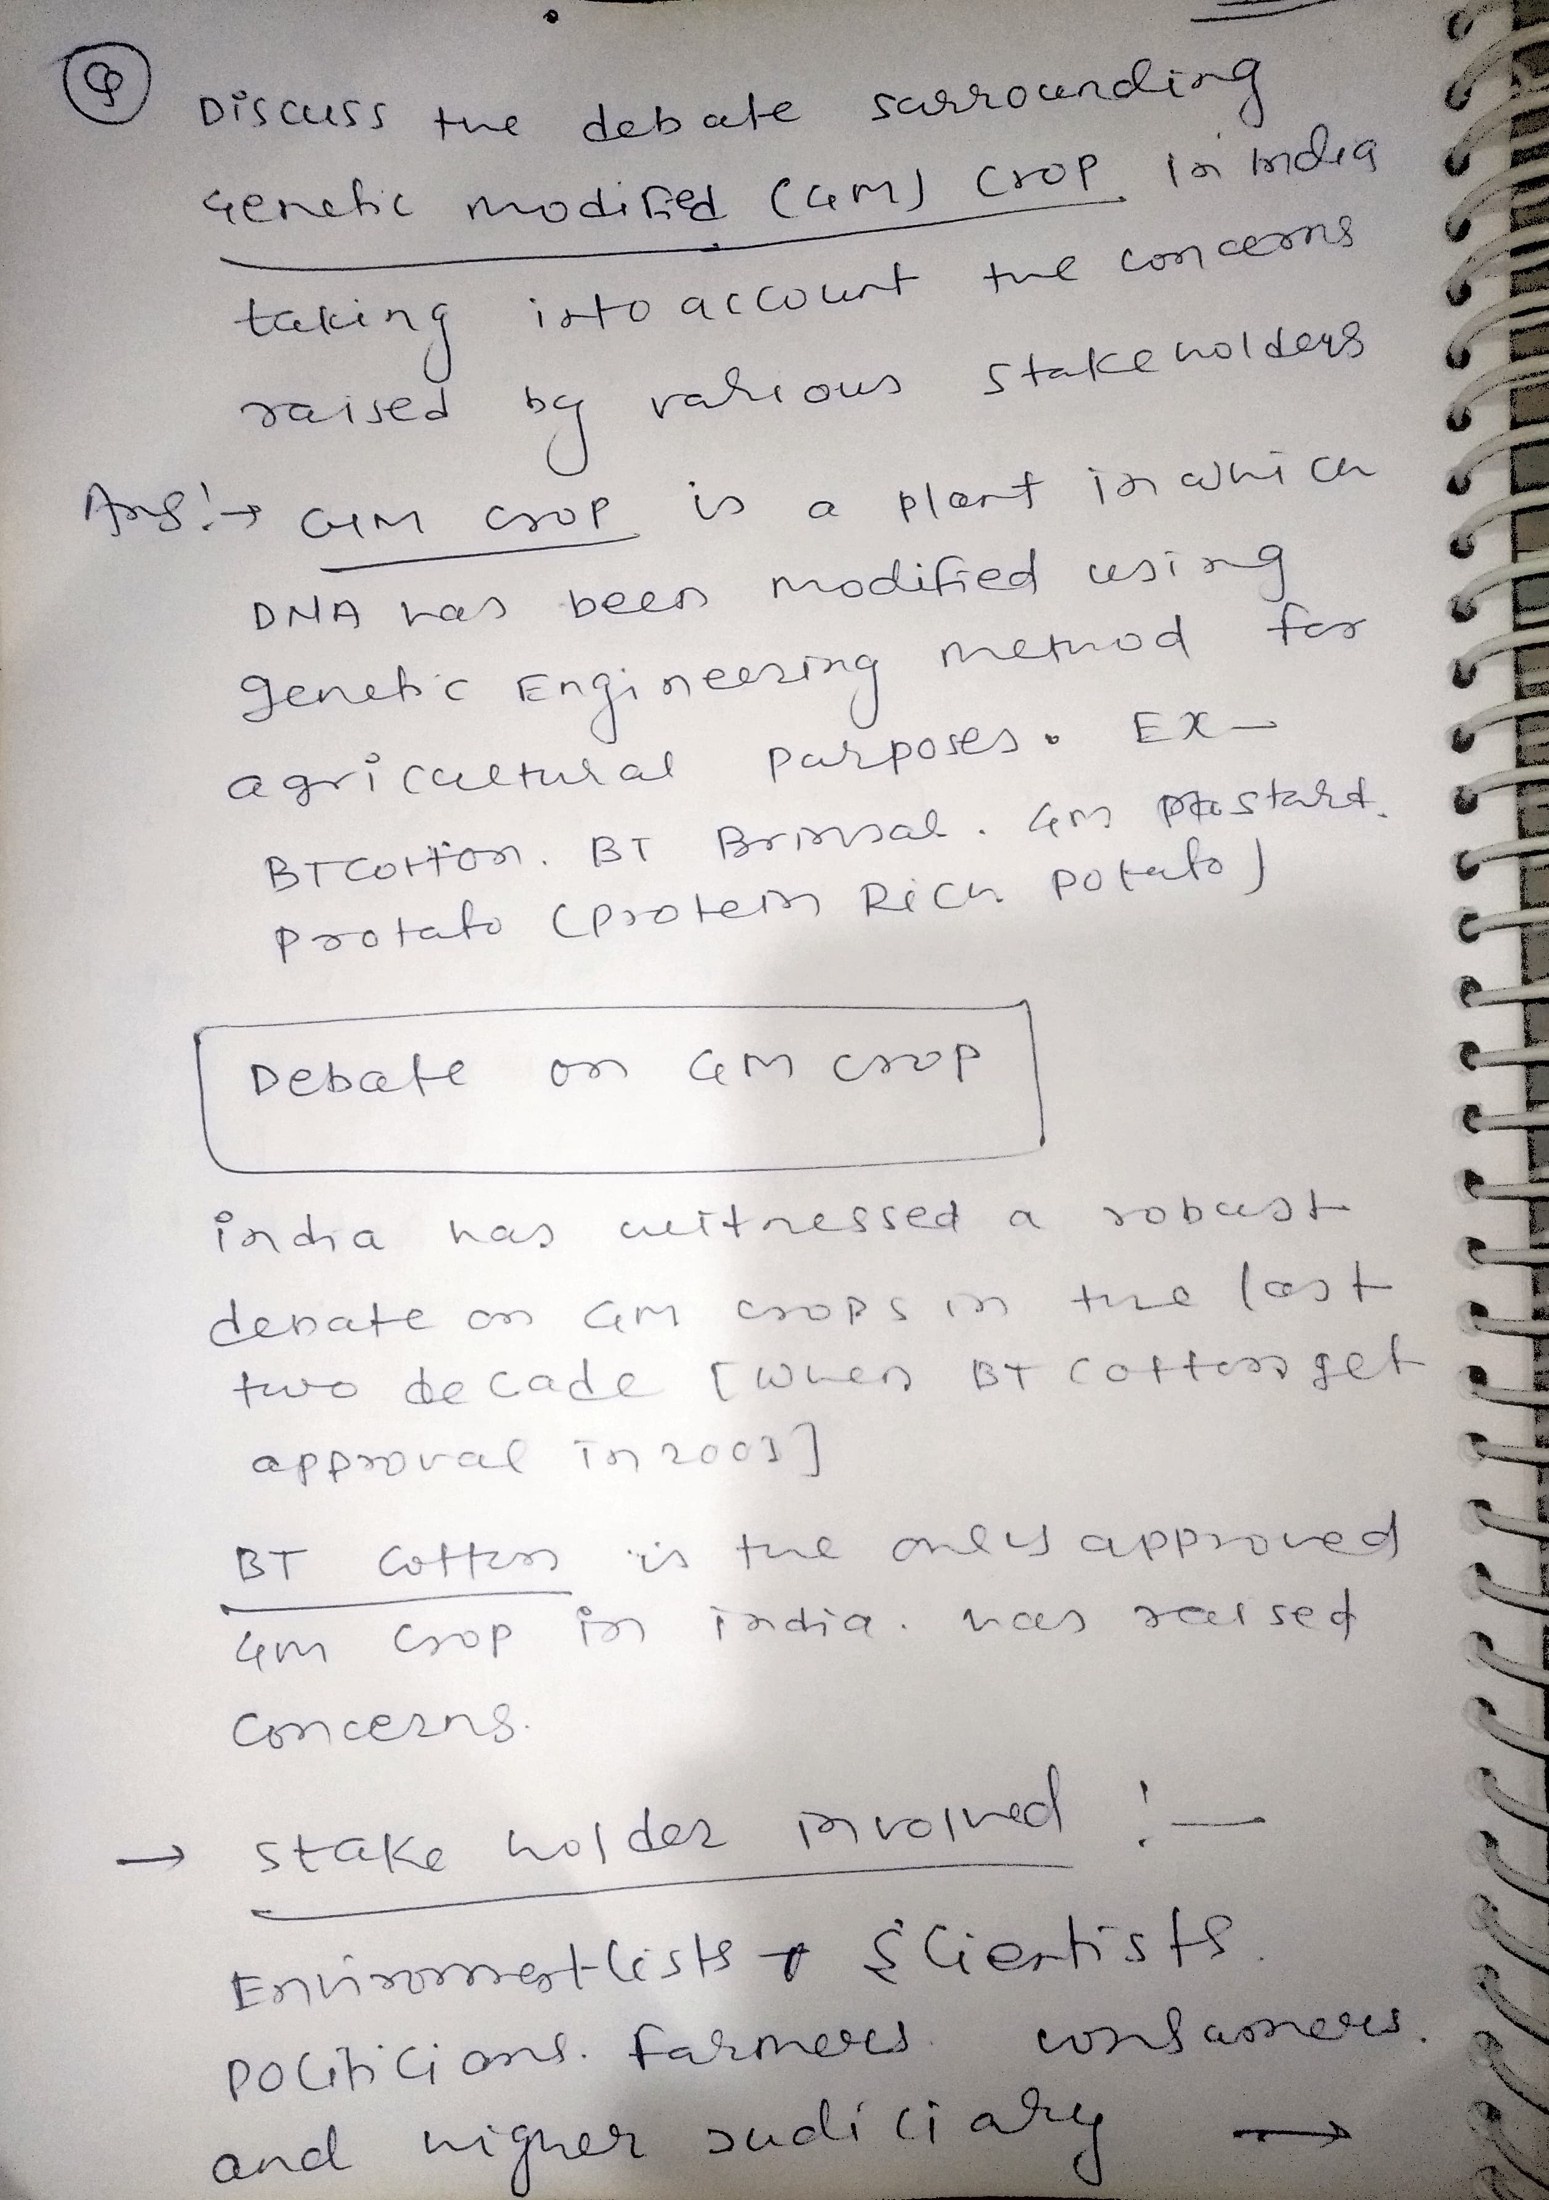 Q Discuss the debate surrounding
Genetic modified (GM) Crop in India
taking into account the concerns
raised by various stakeholders
Ans:→ GM crop is a plant in which
DNA has been modified using
genetic Engineering method for
agricultural purposes. Ex—
BT cotton. BT Brinjal. GM Mustard.
Protato (Protein Rich potato)
Debate on GM crop
india has witnessed a robust
debate on GM crops in the last
two decade [when BT cotton get
approval in 2003]
BT Cotton is the only approved
GM Crop in india. has raised
Concerns.
→ stake holder involved :—
Enviromentlists & Scientists.
Politicians. farmers. consumers.
and higher Judiciary →